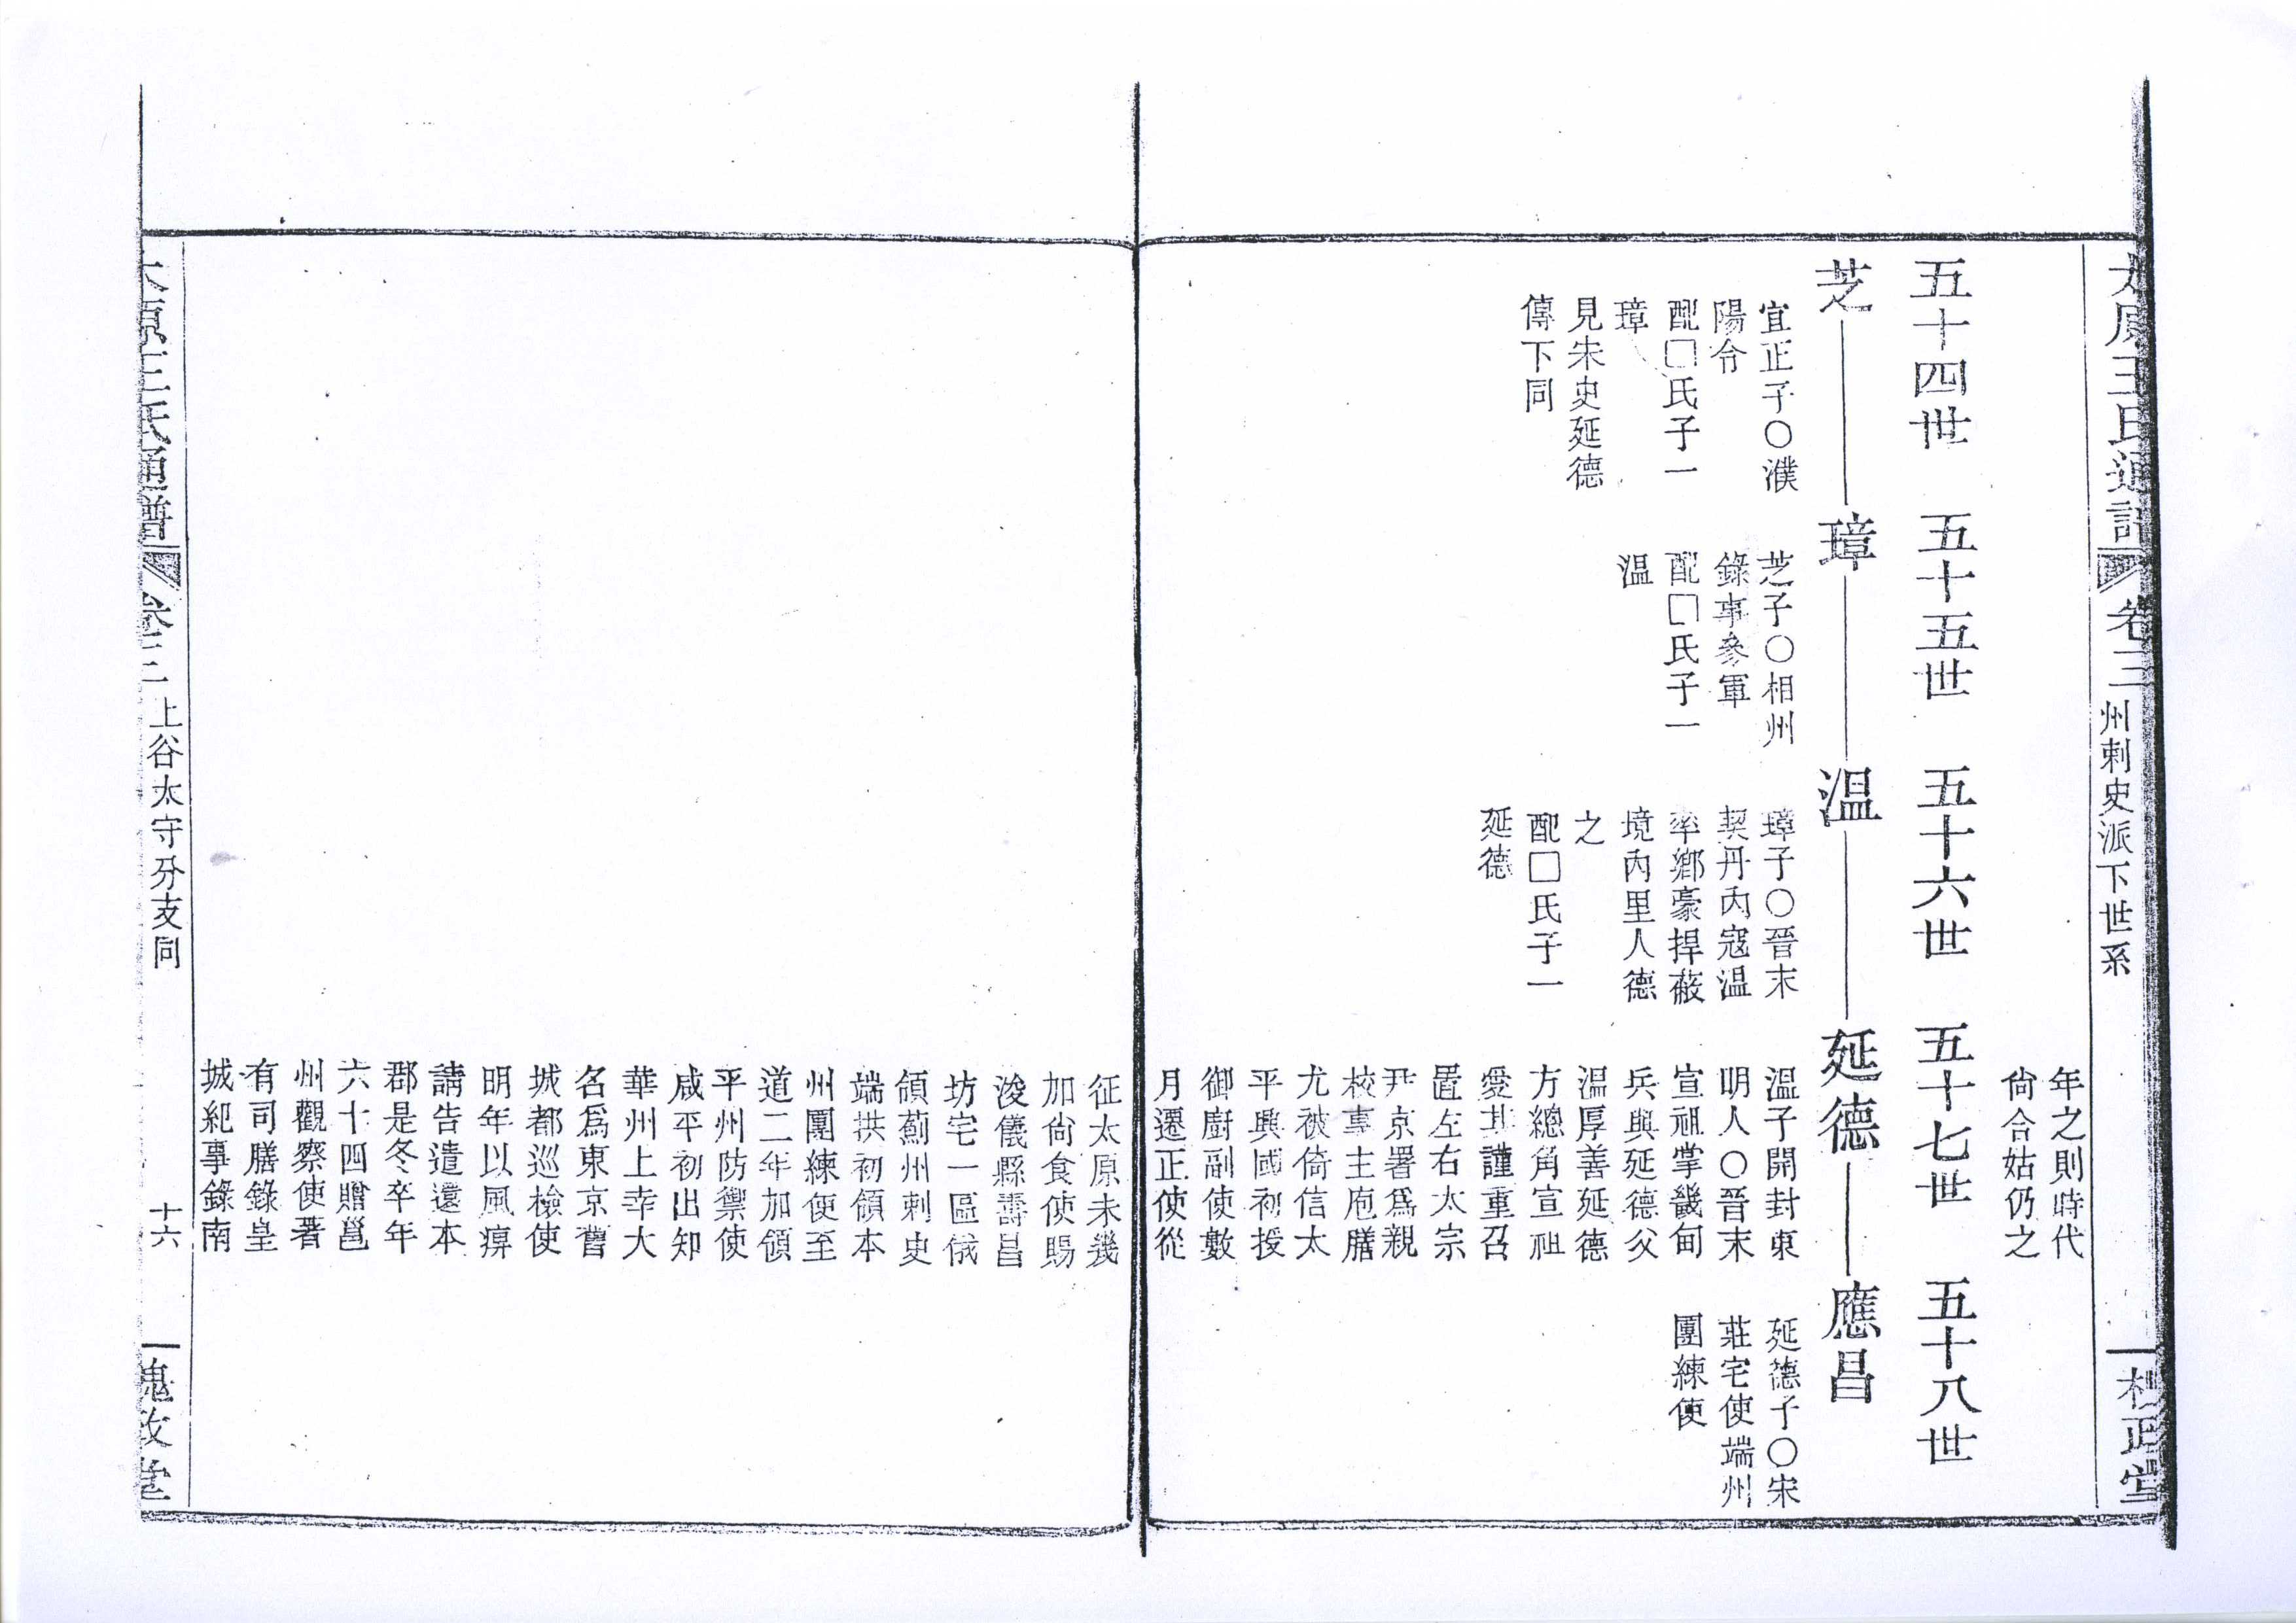 太原王氏通譜 卷三 州刺史派下世系
槐政堂
年之則時代
尙合姑仍之
五十四世 五十五世 五十六世 五十七世 五十八世
芝 璋 温 延德 應昌
宜正子○濮
陽令
配□氏子一
璋
見宋史延德
傳下同
芝子○相州
錄事參軍
配□氏子一
温
璋子○晉末
契丹內寇温
率鄉豪捍蔽
境內里人德
之
配□氏子一
延德
温子開封東
明人○晉末
宣祖掌畿甸
兵與延德父
温厚善延德
方總角宣祖
愛其謹重召
置左右太宗
尹京署爲親
校事主庖膳
尤被倚信太
平興國初授
御廚副使數
月遷正使從
征太原未幾
加尙食使賜
浚儀縣壽昌
坊宅一區俄
領薊州刺史
端拱初領本
州團練使至
道二年加領
平州防禦使
咸平初出知
華州上幸大
名爲東京舊
城都巡檢使
明年以風痹
請告遣還本
郡是冬卒年
六十四贈邕
州觀察使著
有司膳錄皇
城紀事錄南
延德子○宋
莊宅使端州
團練使
太原王氏通譜 卷三 上谷太守分支同 十六
槐政堂